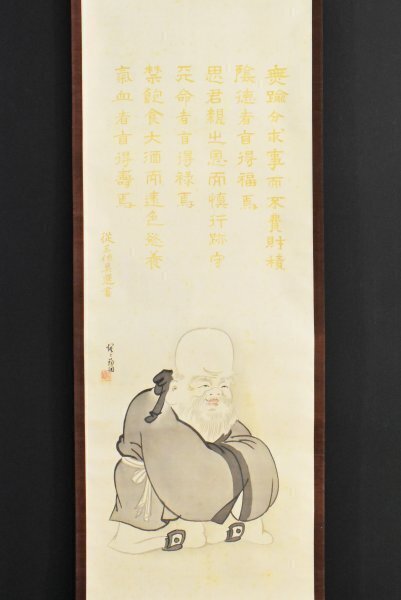 無踰分求事而不費財積
陰徳者首得福焉
思君親之恩而慎行跡守
天命者首得禄焉
禁飽食大酒而遠色慾養
氣血者首得壽焉